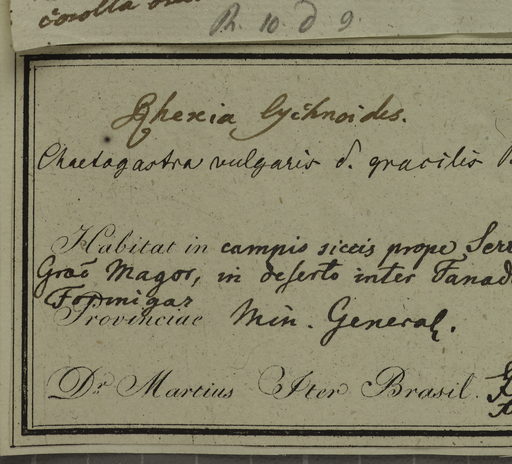 corolla
R. 10. d 9
Rhexia lychnoides.
Chaetogastra vulgaris δ. gracilis
Habitat in campis siccis prope Serr
Graõ Magor, in deserto inter Tanad
Formigas
Provinciae Min. General.
Dr. Martius Iter Brasil.